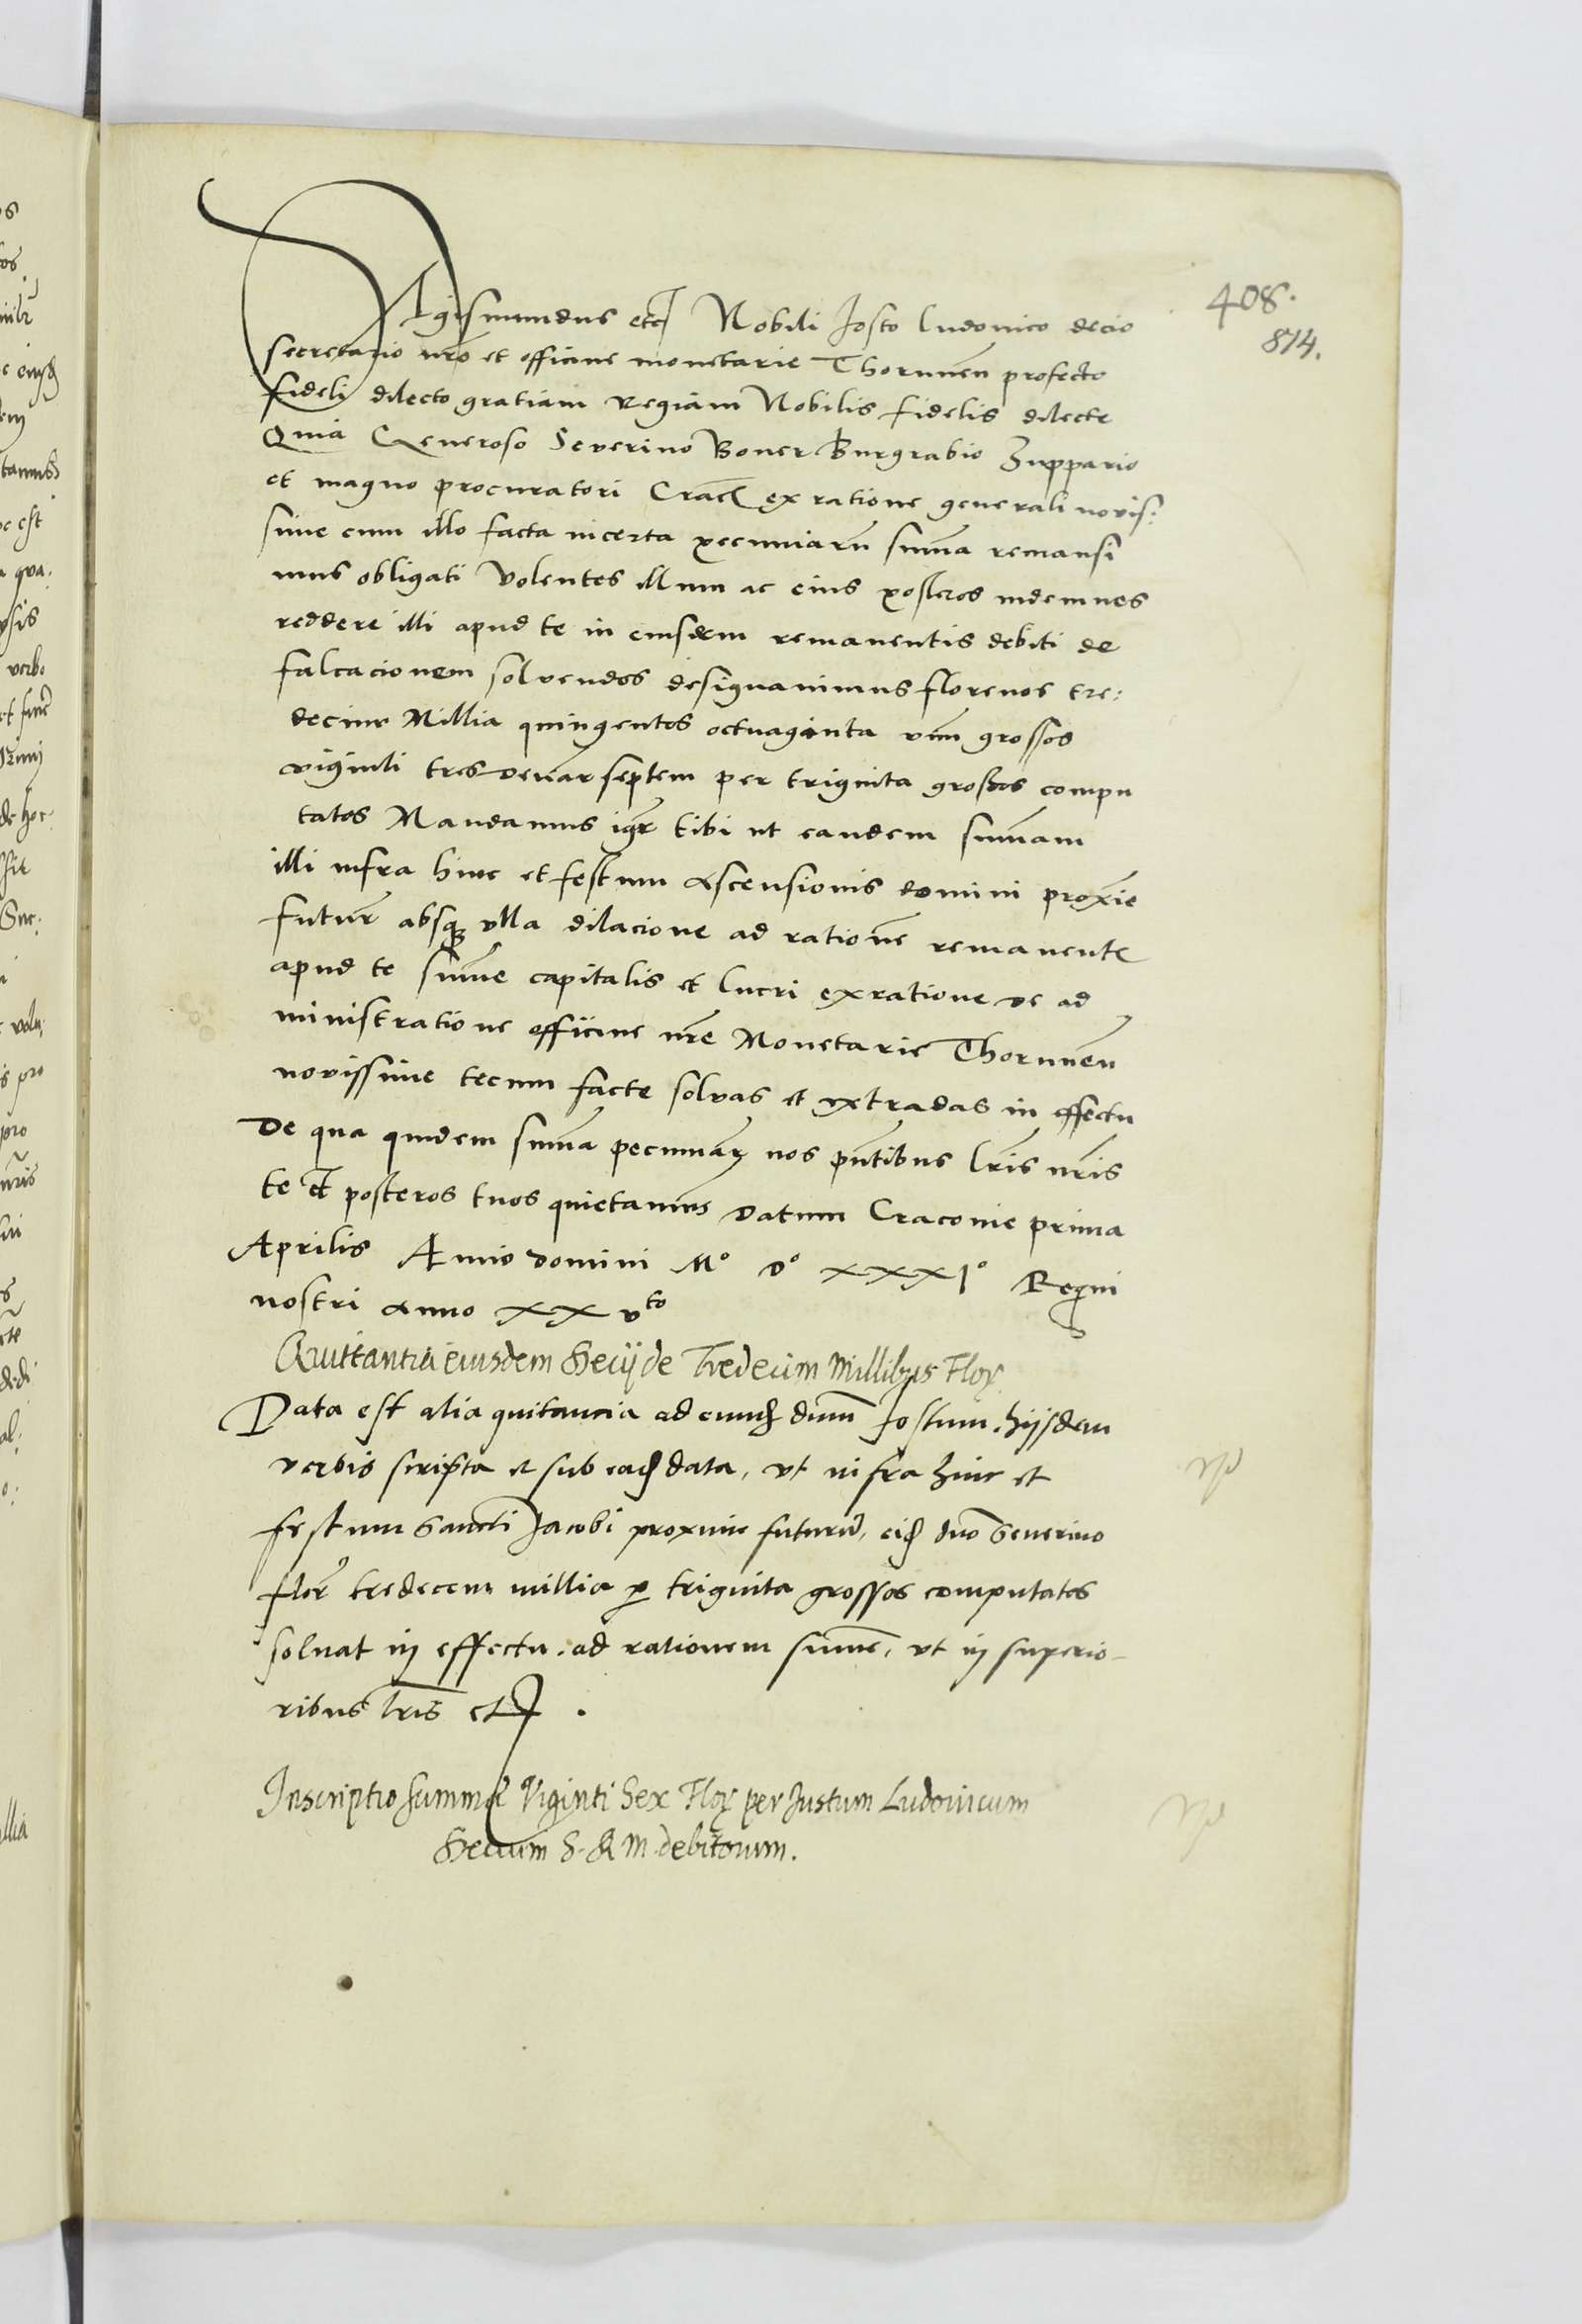 408.
814.
Sigismundus etc Nobili Josto ludovico decio
secretario nro et officine monetarie Thorunen profecto
fideli dilecto gratiam regiam Nobilis fidelis dilecte
Quia Generoso Severino Boner Burgrabio Zuppario
et magno procuratori Crac ex ratione generali novis:
sime cum illo facta in certa pecuniaru suma remansi
mus obligati Volentes illum ac eius posteros indemnes
reddere illi apud te in eiusdem remanentis debiti de
falcacionem solvendos designavimus florenos tre:
decim Millia quingentos octuaginta unu grossos
viginti tres denar septem per triginta grossos compu
tatos Mandamus igr tibi ut eandem sumam
illi infra hinc et festum ascensionis domini proxie
futur absq ulla dilacione ad ratione remanente
apud te sume capitalis et lucri ex ratione de ad
ministratione officine nre Monetarie Thorunen
novissime tecum facte solvas et extradas in effectu
De qua quidem suma pecuniar nos pntibus lris nris
te et posteros tuos quietamus Datum Cracovie prima
Aprilis Anno domini M° D° XXXI° Regni
nostri anno XX vto
Quittantia eiusdem Decij de Tredecim Millibus Flor
Data est alia quitancia ad eund dnum Jostum, hijsdem
verbis scripta et sub ead data, ut infra hinc et
festum Sancti Jacobi proxime futuru, eid dno Severino
flor tredecem millia p triginta grossos computatos
solvat in effectu. ad rationem sume, ut in superio-
ribus lris etc.
Inscriptio summae Viginti Sex Flor per Justum Ludovicum
Decium S. R M. debitorum.